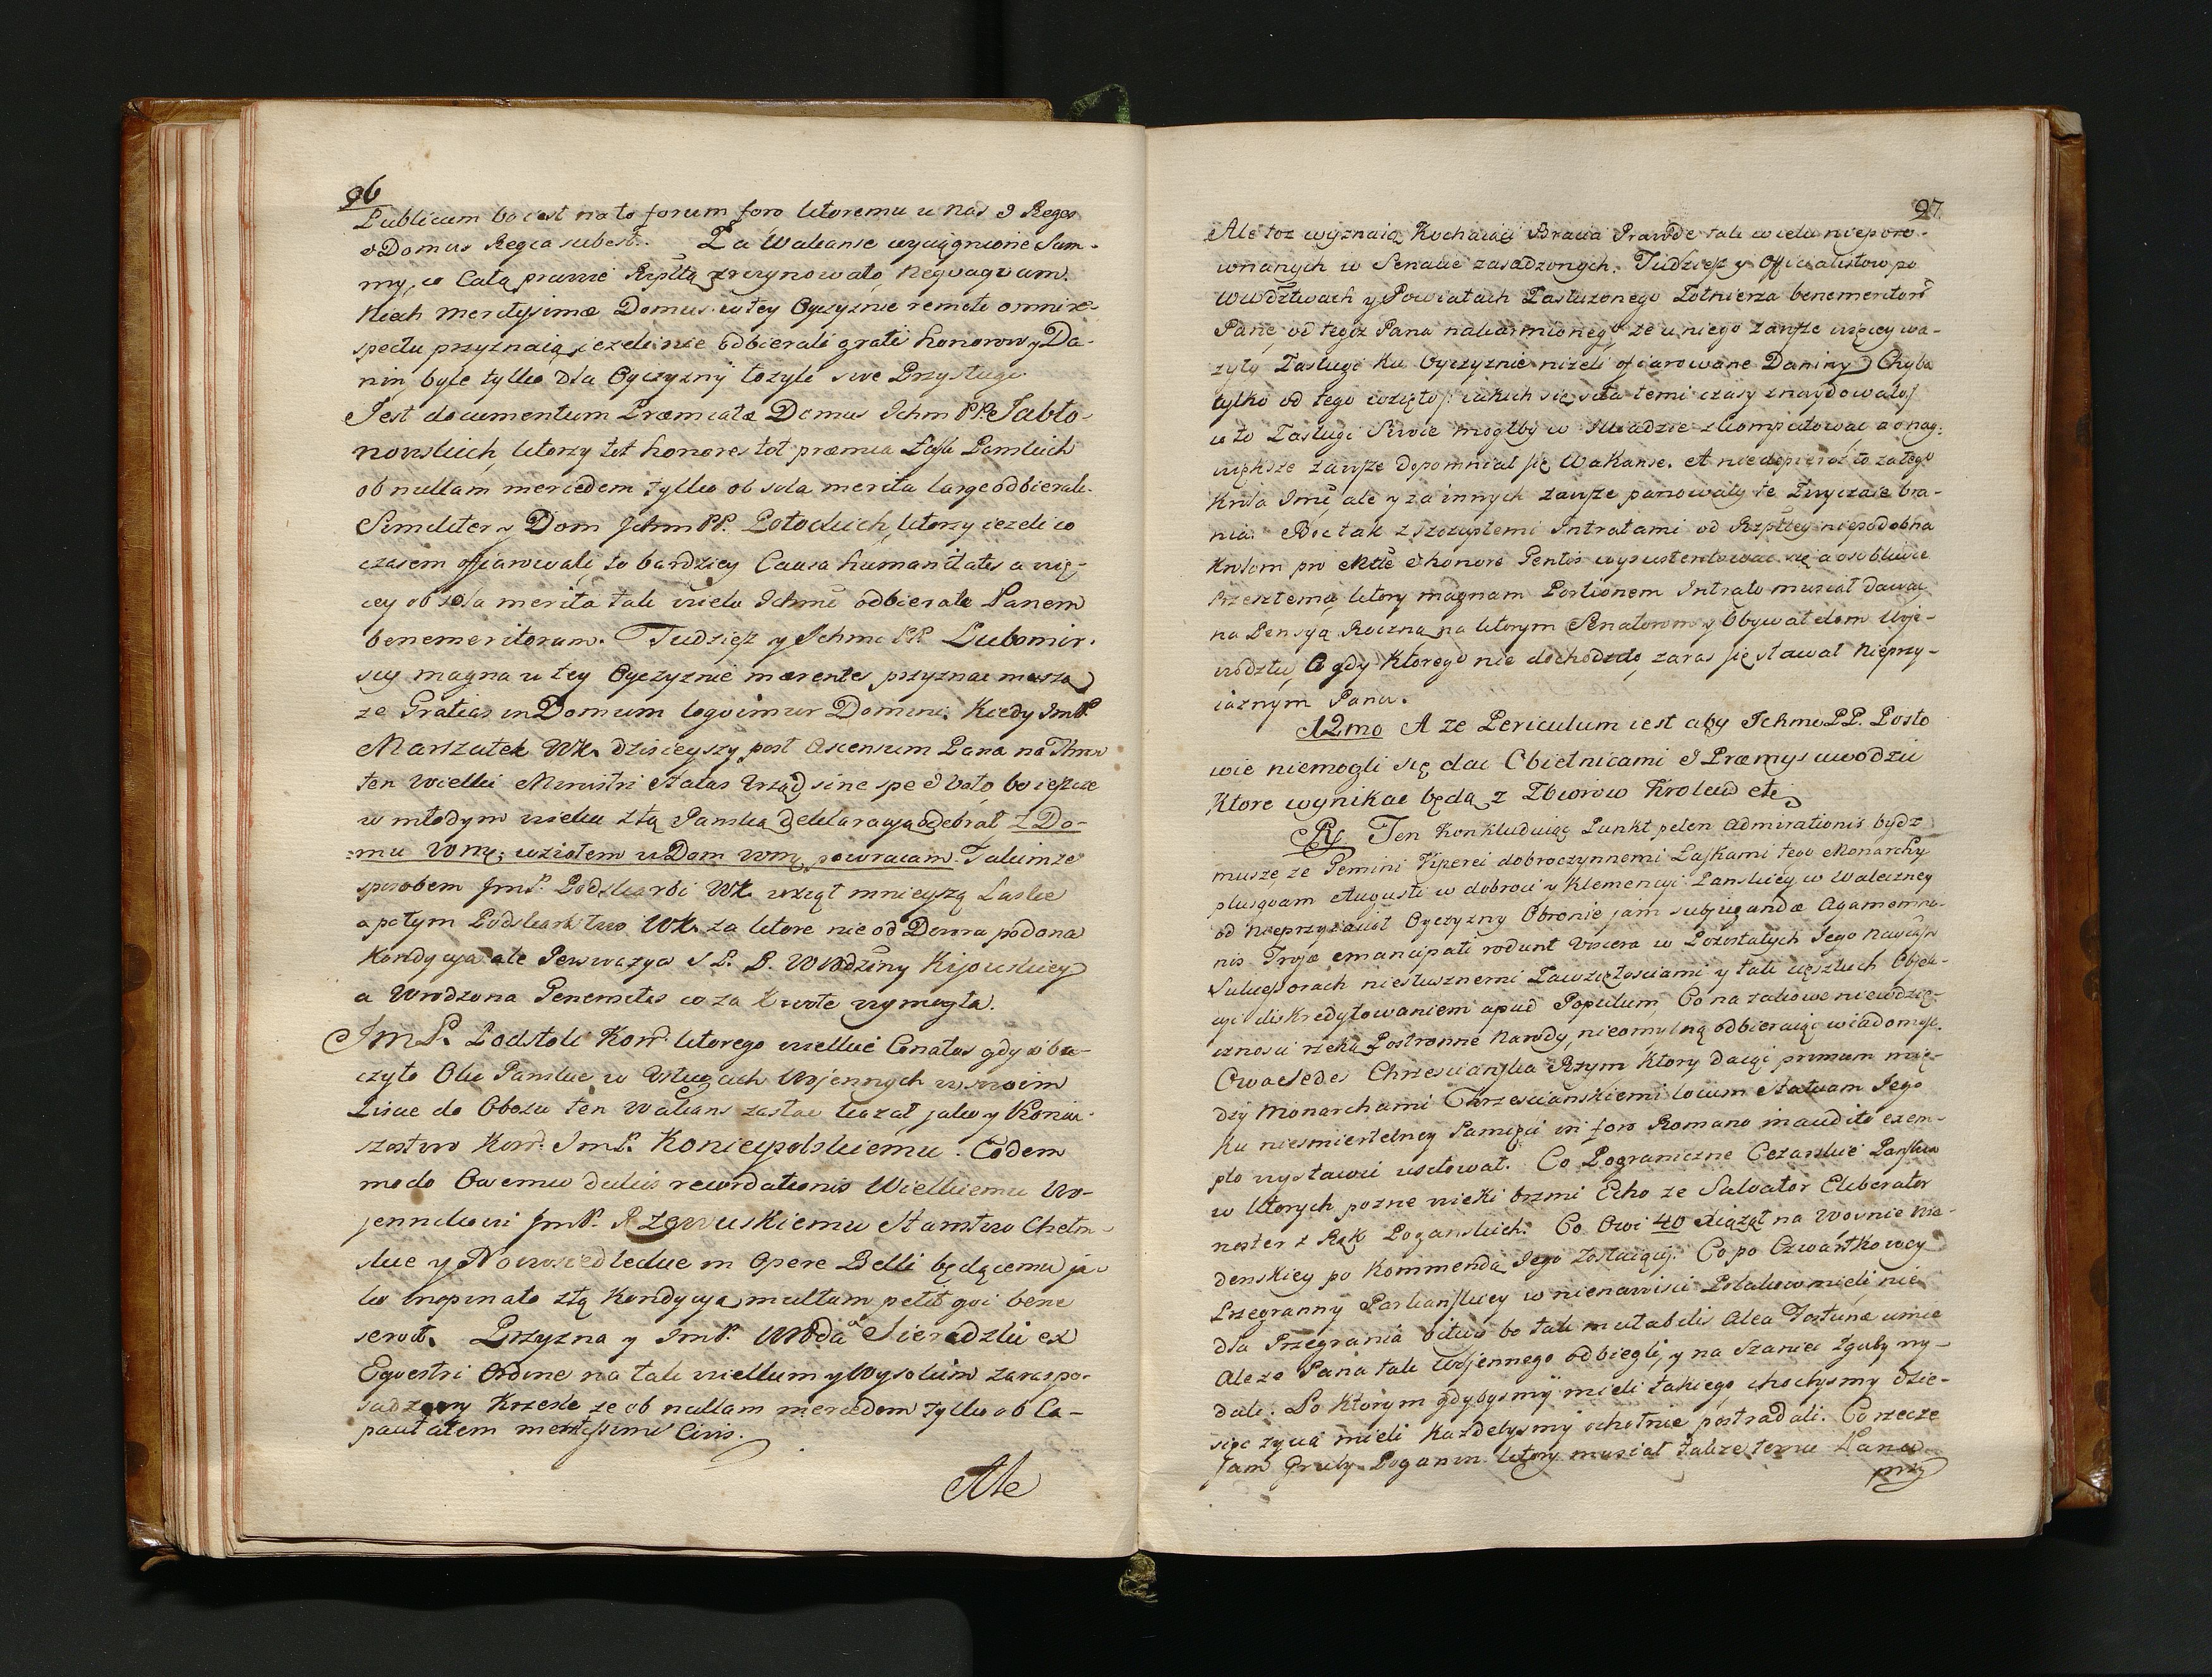 96
Publicum bo iest na to forum foro ktoremu u nas & Reges
& Domus Regia subest. Za Wakanse wyciągnione Sum-
my, co Całą prawie Rzpltą zruynowało, Neqvaqvam.
Niech meritissimæ Domus w tey Oyczyznie remoto omni re-
spectu przyznaią, ieżeli nie odbierali gratis honorow y Da-
nin, byle tylko dla Oyczyzny łożyli swe Przysługi.
Jest documentum Præmiatæ Domus Ichm PP. Jabło-
nowskich, ktorzy tot honores tot præmia Łask Pańskich
ob nullam mercedem tylko ob sola merita large odbierali.
Similiter y Dom Ichm PP. Potockich, ktorzy ieżeli co
czasem offiarowali, to bardziey Causa humanitatis a wię-
cey ob sola merita tak wiele Ichmc odbierali Panem
benemeritorum. Tudzież y Ichmc PP. Lubomir-
scy magna w tey Oyczyznie mærentes przyznac muszą
ze Gratias in Domum loqvimur Domini. Kiedy ImP.
Marszałek WK. dzisieyszy post Ascensum Pana na Thron
ten wielki Ministri Status Urząd sine spe & voto, bo ieszcze
w młodym wieku z tą Pańską deklaracyą odebrał z Do-
mu Wmę; wziołem w Dom Wmę powracam. Takimże
sposobem ImP. Podskarbi WK. wziął mnieyszą Laskę
a potym Podskarbstwo WK. za ktore nie od Domu podana
Kondycya ale Perswazya J P. P. Wwodziny Kijowskiey
a Wrodzona Penemitas co za kwotę wymogła.
ImP. Podstoli Kor. ktorego wielkie Conatus gdy oba-
czyło Oko Pańskie w Usługach Wojennych w swoim
Lisce do Obozu ten Wakans zastac kazał jako y Koniu-
szostwo Kor. ImP. Koniecpolskiemu. Eodem
modo Owemu dulcis recordationis Wielkiemu Wo-
jennikowi ImP. Rzewuskiemu Starostwo Chełm-
skie y Nowosiedleckie in Opere Belli będącemu ja-
ko inopinato z tą Kondycyą, multum petit qvi bene
servit. Przyzna y ImP. Wwda Sieradzki ex
Eqvestri Ordine na tak wielkim y Wysokim zaraz po-
sadzony Krzesle ze ob nullam mercedem tylko ob Ca-
pacitatem meritissimi Civis.
Ale
97
Ale toż wyznaią Kochaiąci Bracia Prawdę tak wielu nieporo-
wnanych w Senacie zasadzonych. Tudzież y Officialistow po
Wwdztwach y Powiatach Zasłuzonego Zołnierza benemeritorū
Panē, od tegoż Pana nakarmionego, że u niego zawsze więcey wa-
żyły Zasługi ku Oyczyznie niżeli ofiarowane Daniny) Chyba
tylko od tego wzięto/: iakich się siła temi czasy znaydowało/
co to Zasługi Swoie mogłby w Kwadzie zkomputować a o nay-
większe zawsze dopominał się Wakanse. A nie dopieroż to za tego
Krola Jmć, ale y za innych zawsze panowały te Zwyczaie bra-
nia. Boć tak z szczupłemi Intratami od Rzpltey niepodobna
Krolom pro Mtte & honore Gentis wysustentować się, a osobliwie
Przeszłemu, ktory magnam Portionem Intrat musiał dawać
na Pensyą Roczną na ktorym Senatorom y Obywatelom Woje-
wodztw, A gdy Ktorego nie dochodzło, zaras się stawał Nieprzy-
iaznym Panu.
12mo A ze Periculum iest aby Ichmc PP. Posło
wie niemogli się dac Obietnicami & Præmys uwodzić
Ktore wynikac będą z Zbiorow Krolewd etc
Rs. Ten Konkluduiąc Punkt pelen Admirationis bydz
muszę, ze Gemini Viperei dobroczynnemi Łaskami tego Monarchy
plusqvam Augusti w dobroci y Klemencyi Pańskiey w Waleczney
od nieprzyiaciół Oyczyzny Obronie jam subjugandæ Agamemno-
nis Trojæ emancipati rodunt viscera w Pozostałych Jego Nayias
Sukcessorach niesłusznemi Zawziętosciami y tak cięszkich Objek-
cyi diskredytowaniem apud Populum, Co na takowe niewdzię-
cznosci rzeką Postronne Narody, nieomylną odbieraiąc wiadomosc.
Owa Sedes Chrzescianska Rzym Ktory daiąc primum mię-
dzy Monarchami Chrzescianskiemi locum Statuam Jego
Ku niesmiertelney Pamięci in foro Romano inaudito exem-
plo wystawic usiłował. Co Pograniczne Cezarskie Państwa
w ktorych pozne wieki brzmi Echo ze Salvator & Liberator
noster z Rąk Pogańskich. Co Owi 40 Xiążąt na Woynie Wie-
denskiey po Kommendą Jego Zostaiący. Co po Czwartkowey
Przegranny Parkańskiey w nienawisci Polakow mieli, nie
dla Przegrania bitwy bo tak mutabilis Alea Fortunæ umie
Ale ze Pana tak Wojennego odbiegli, y na Szaniec zguby wy-
dali. Po Ktorym gdybysmy mieli takiego chocbysmy dzie-
sięc zycia mieli każdebysmy ochotnie postradali. Co rzecze
sam Gruby Poganin ktory musiał także temu Panu
przy